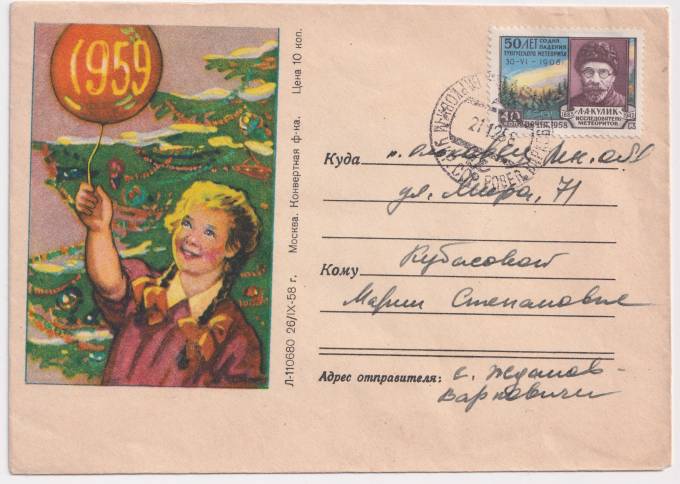 1959
Л-110680 26/IX-58 г. Москва. Конвертная ф-ка. Цена 10 коп.
50 ЛЕТ СО ДНЯ ПАДЕНИЯ
ТУНГУССКОГО МЕТЕОРИТА
30-VI-1908
Л.А. КУЛИК
ИССЛЕДОВАТЕЛЬ
МЕТЕОРИТОВ
40 КОП. ПОЧТА 1958
Куда
ул. Мира, 71
Кубасовой
Кому
Марии Степановне
Адрес отправителя: с. Жданов-
Варковичи